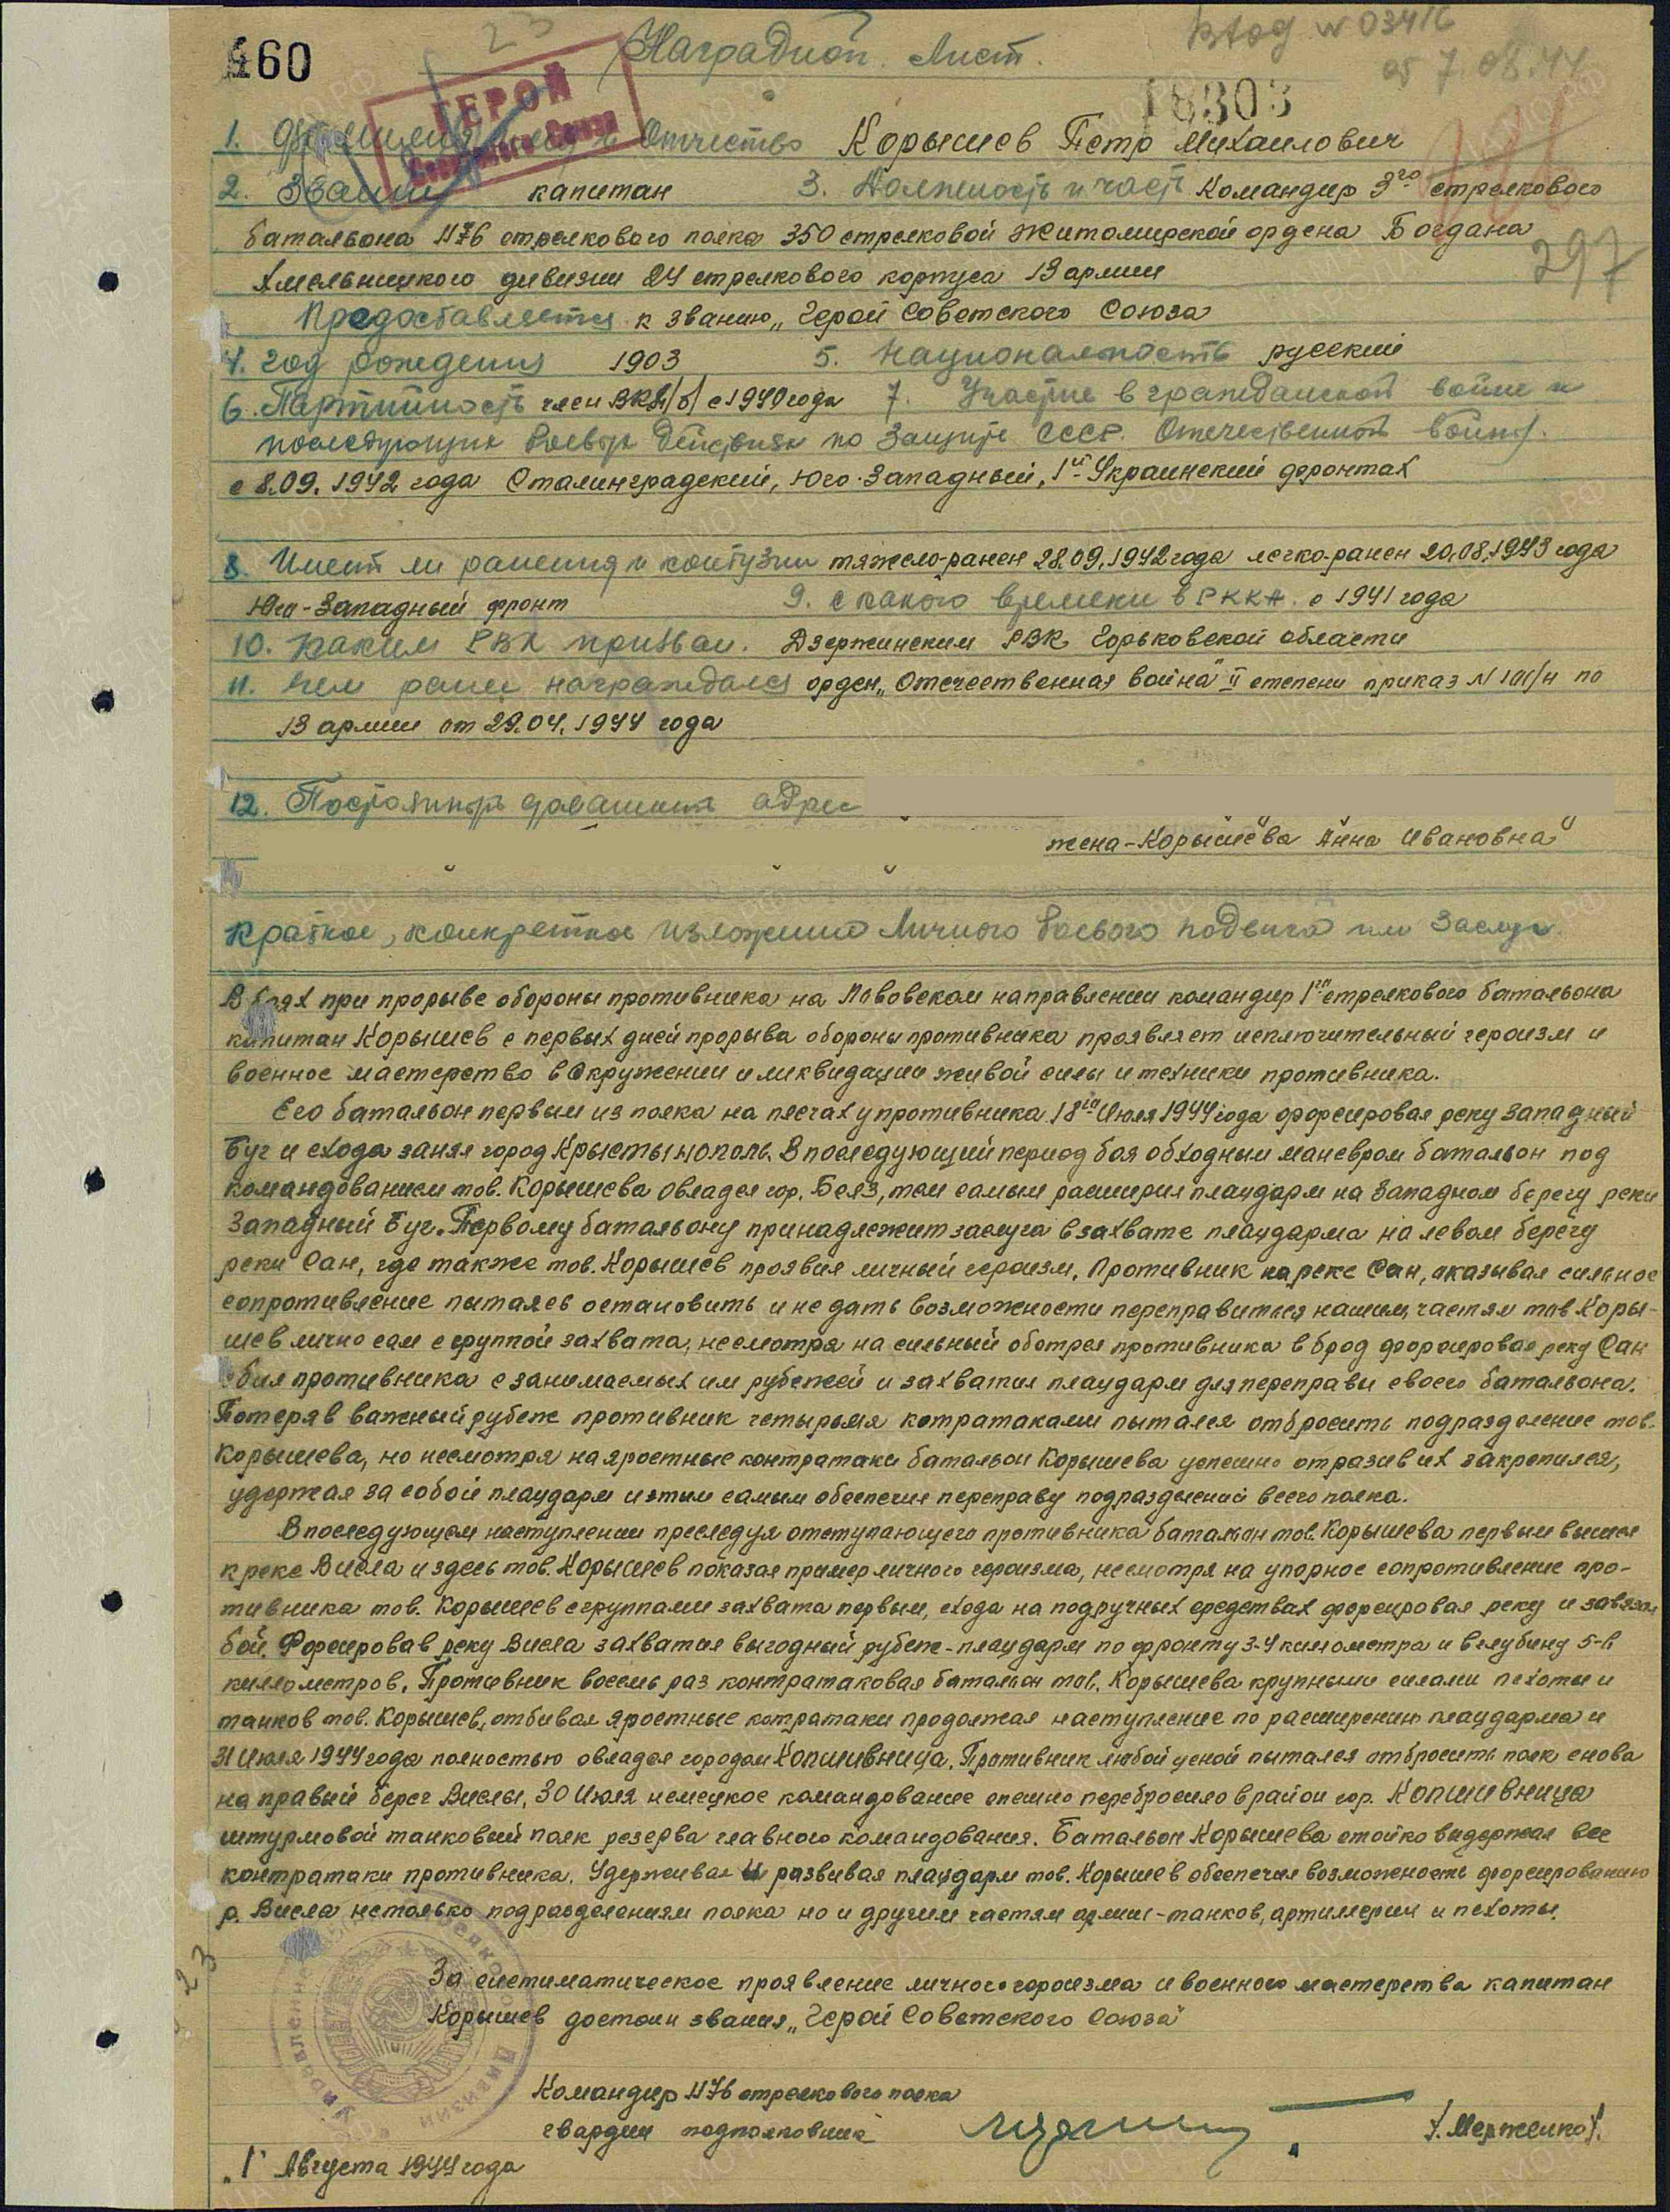 460
23
Наградной Лист.
Вход N 03416
от 7.08.44
18303
ГЕРОЙ
Советского Союза
1. Фамилия имя и Отчество Корышев Петр Михаилович
2. Звание капитан 3. Должность и часть Командир 3го стрелкового
батальона 1176 стрелкового полка 350 стрелковой Житомирской ордена Богдана
297
Хмельницкого дивизии 24 стрелкового корпуса 13 армии
Предоставляется к званию „Герой Советского Союза
4. год рождения 1903 5. Национальность русский
6. Партийность член ВКП/б/ с 1940 года 7. Участие в гражданской войне и
последующих боевых действиях по защите СССР. Отечественной войны.
с 8.09.1942 года Сталинградский, Юго-Западный, 1й Украинский фронтах
8. Имеет ли ранения и контузии тяжело-ранен 28.09.1942 года легко-ранен 20.08.1943 года
Юго-Западный фронт 9. с какого времени в РККА. с 1941 года
10. Каким РВК призван. Дзержинским РВК Горьковской области
11. Чем ранее награждался орден „Отечественная война" II степени приказ N /н по
13 армии от 29.04.1944 года
12. Постоянный домашний адрес
жена-Корышева Анна Ивановна"
Краткое, конкретное изложение Личного боевого подвига или Заслуг
В боях при прорыве обороны противника на Львовском направлении командир 1го стрелкового батальона
капитан Корышев с первых дней прорыва обороны противника проявляет исключительный героизм и
военное мастерство в окружении и ликвидации живой силы и техники противника.
Его батальон первым из полка на плечах у противника 18го Июля 1944 года форсировал реку Западный
Буг и схода занял город Крыстынополь. В последующий период боя обходным маневром батальон под
командованием тов. Корышева овладел гор. Белз, тем самым расширил плацдарм на Западном берегу реки
Западный Буг. Первому батальону принадлежит заслуга в захвате плацдарма на левом берегу
реки Сан, где также тов. Корышев проявил личный героизм. Противник на реке Сан, оказывал сильное
сопротивление пытаясь остановить и не дать возможности переправиться нашим частям тов Коры-
шев лично сам с группой захвата, несмотря на сильный обстрел противника в брод форсировал реку Сан
сбил противника с занимаемых им рубежей и захватил плацдарм для переправы своего батальона.
Потеряв важный рубеж противник четырьмя котратаками пытался отбросить подразделение тов.
Корышева, но несмотря на яростные контратаки батальон Корышева успешно отразив их закрепился,
удержал за собой плацдарм и этим самым обеспечил переправу подразделений всего полка.
В последующем наступлении преследуя отступающего противника батальон тов. Корышева первым вышел
к реке Висла и здесь тов. Корышев показал пример личного героизма, несмотря на упорное сопротивление про-
тивника тов. Корышев с группами захвата первым, схода на подручных средствах форсировал реку и завязал
бой. Форсировав реку Висла захватил выгодный рубеж-плацдарм по фронту 3-4 километра и в глубину 5-6
километров. Противник восемь раз контратаковал батальон тов. Корышева крупными силами пехоты и
танков тов. Корышев, отбивал яростные котратаки продолжал наступление по расширению плацдарма и
31 Июля 1944 года полностью овладел городом Копшивница. Противник любой ценой пытался отбросить полк снова
на правый берег Вислы, 30 Июля немецкое командование спешно перебросило в район гор. Копшивница
штурмовой танковый полк резерва главного командования. Батальон Корышева стойко выдержал все
контратаки противника. Удерживая и развивая плацдарм тов. Корышев обеспечил возможность форсированию
р. Висла не только подразделениям полка но и другим частям армии-танков, артиллерии и пехоты.
23
За систиматическое проявление личного героизма и военного мастерства капитан
Корышев достоин звания „Герой Советского Союза"
Командир 1176 стрелкового полка
гвардии подполковник /. Мерженко /.
„1" Августа 1944 года